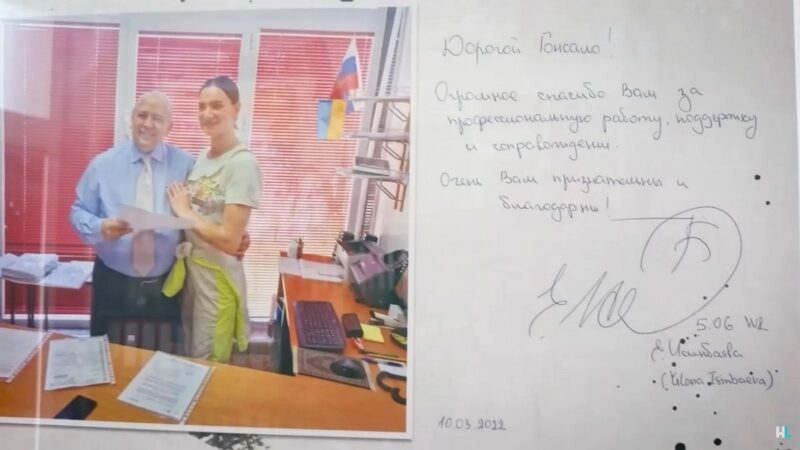 Дорогой Гонсало!
Огромное спасибо Вам за
профессиональную работу, поддержку
и сопровождение.
Очень Вам признательны и
благодарны!
5.06 WR
Е. Исинбаева
(Elena Isinbaeva)
10.03.2022
HL